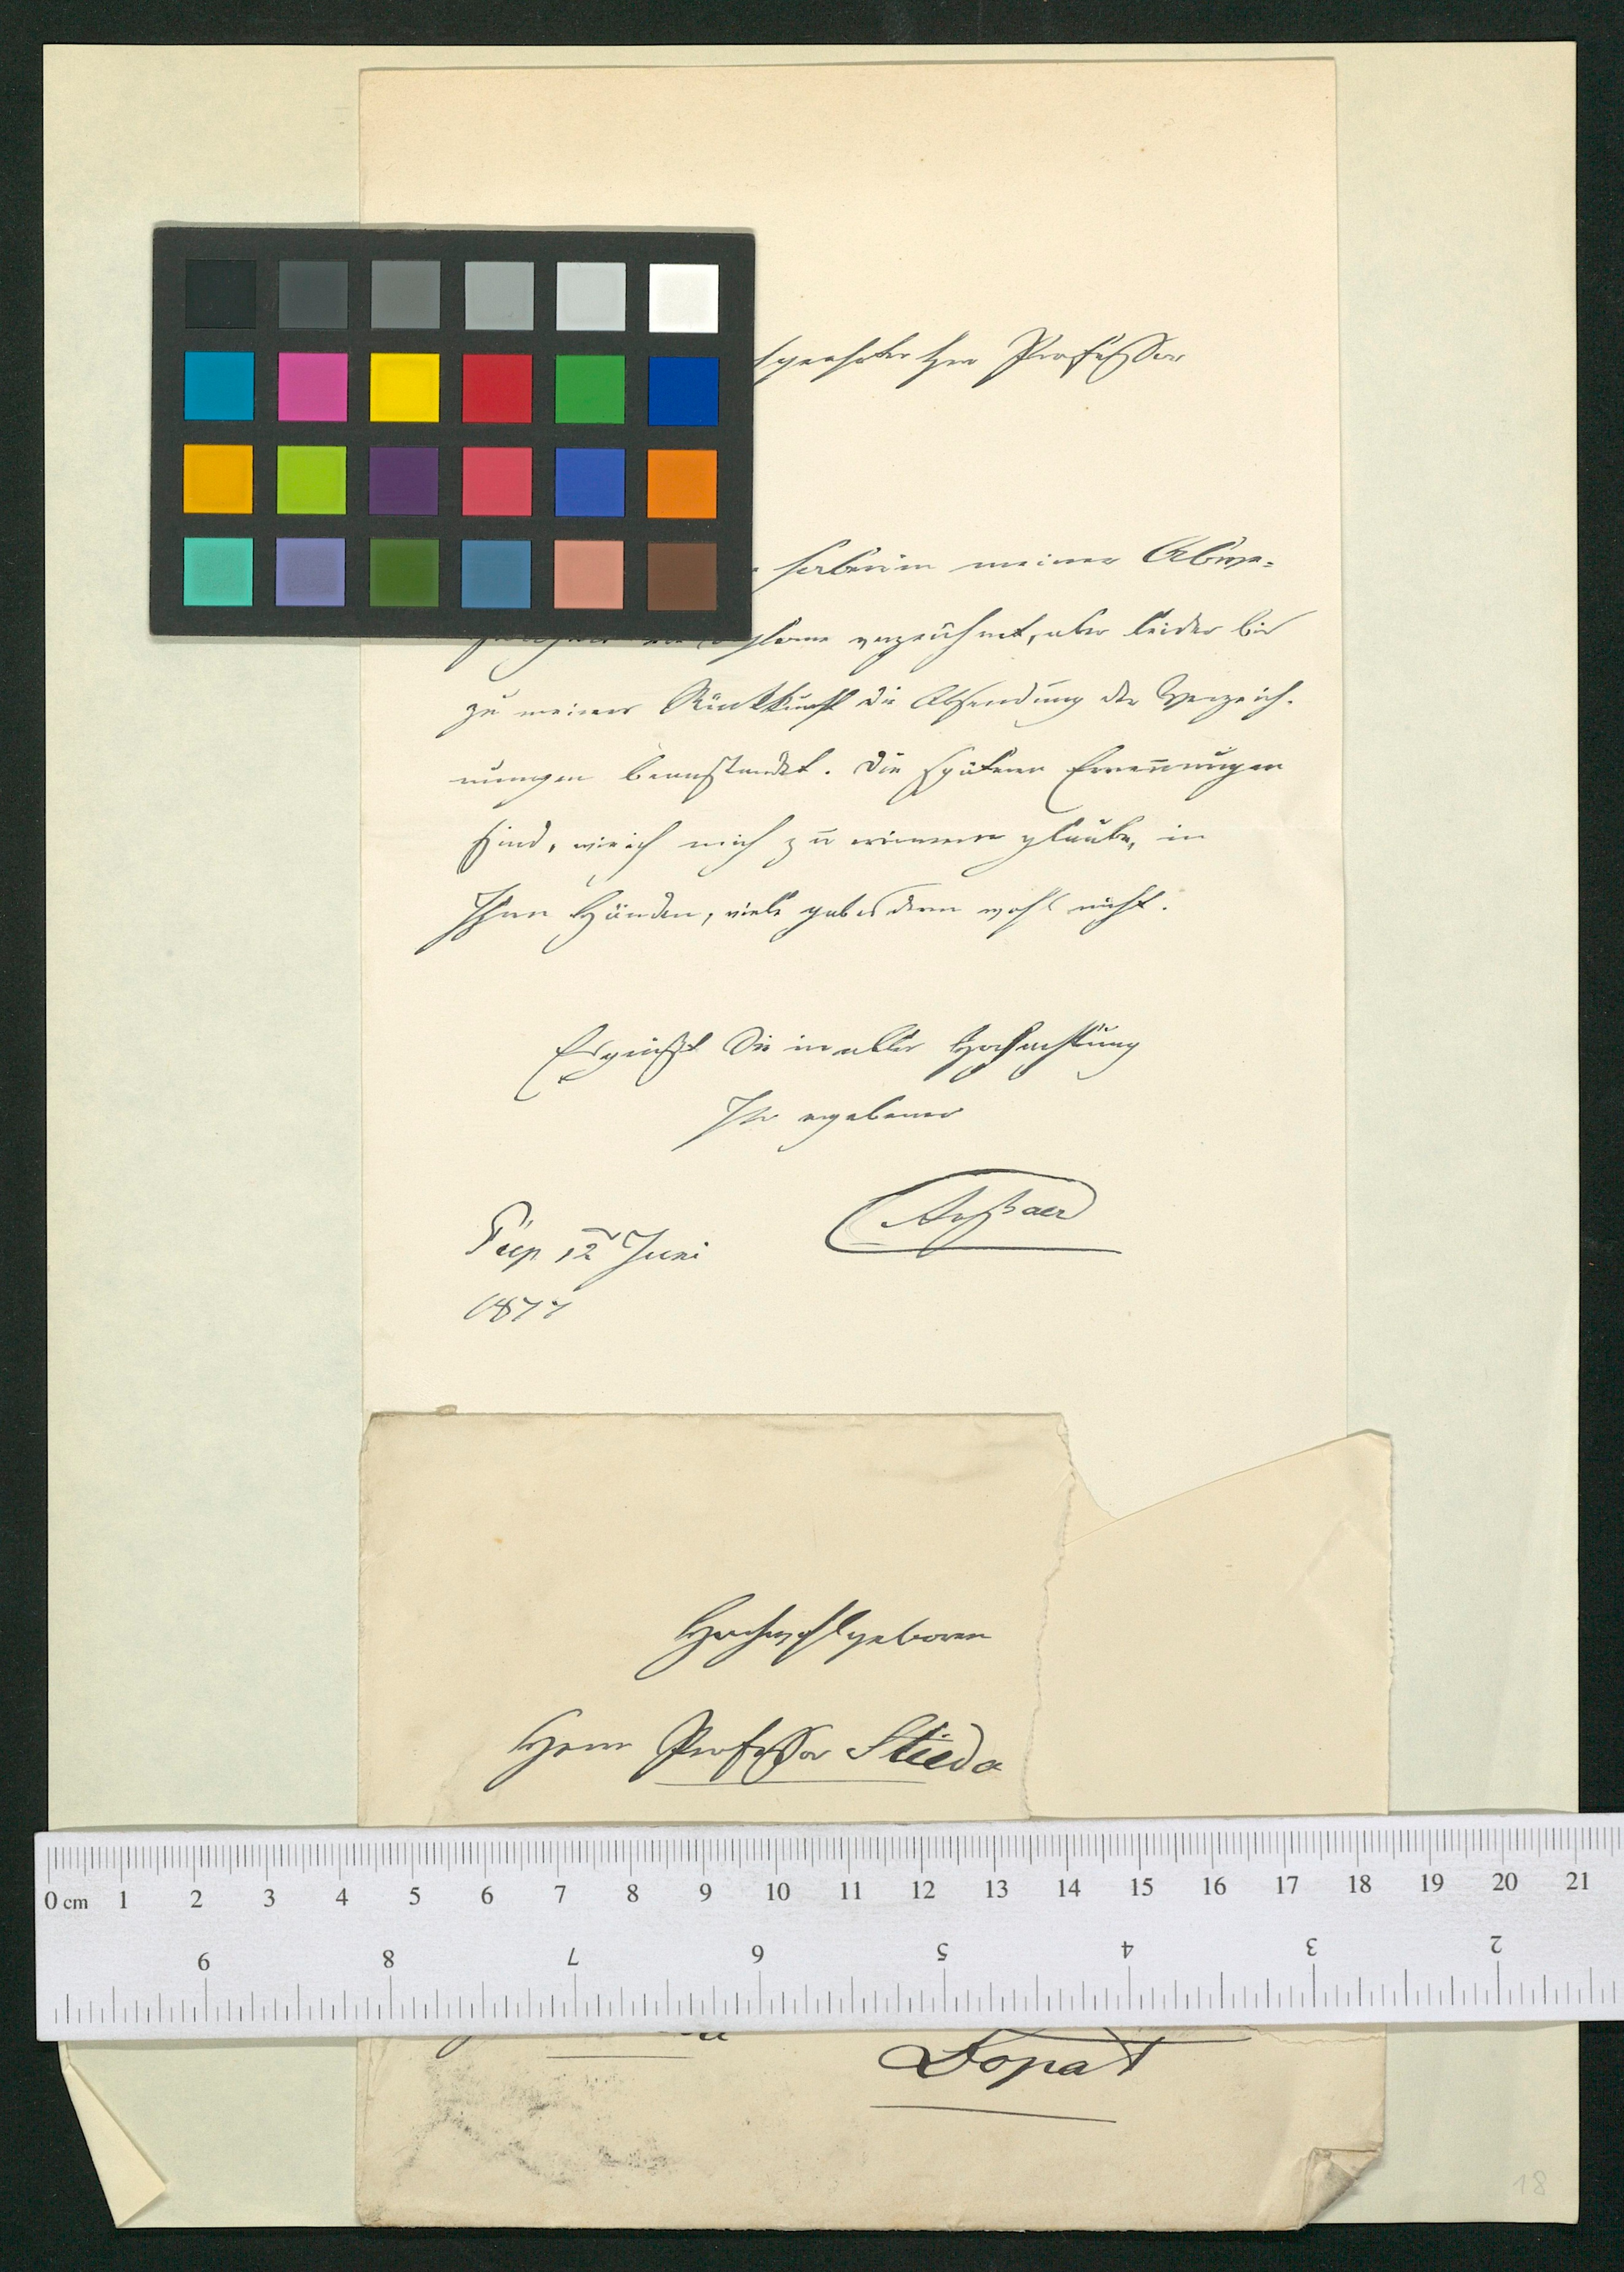 geehrter Herr Professor
haben in meiner Abwe-
Diplome verzeichnet, aber leider bis
zu meiner Rückkunft die Absendung der Verzeich-
nungen beanstandet. Die späteren Ernennungen
sind, wie ich mich zu erinnern glaube, in
Ihren Händen, viele gab es denn wohl nicht.
Es grüßt Sie in aller Hochachtung
Ihr ergebener
Baer
Piep 12 Juni
1877
Hochwohlgeboren
Herrn Professor Stieda
0 cm 1 2 3 4 5 6 7 8 9 10 11 12 13 14 15 16 17 18 19 20 21
9 8 7 6 5 4 3 2
Dorpat
18